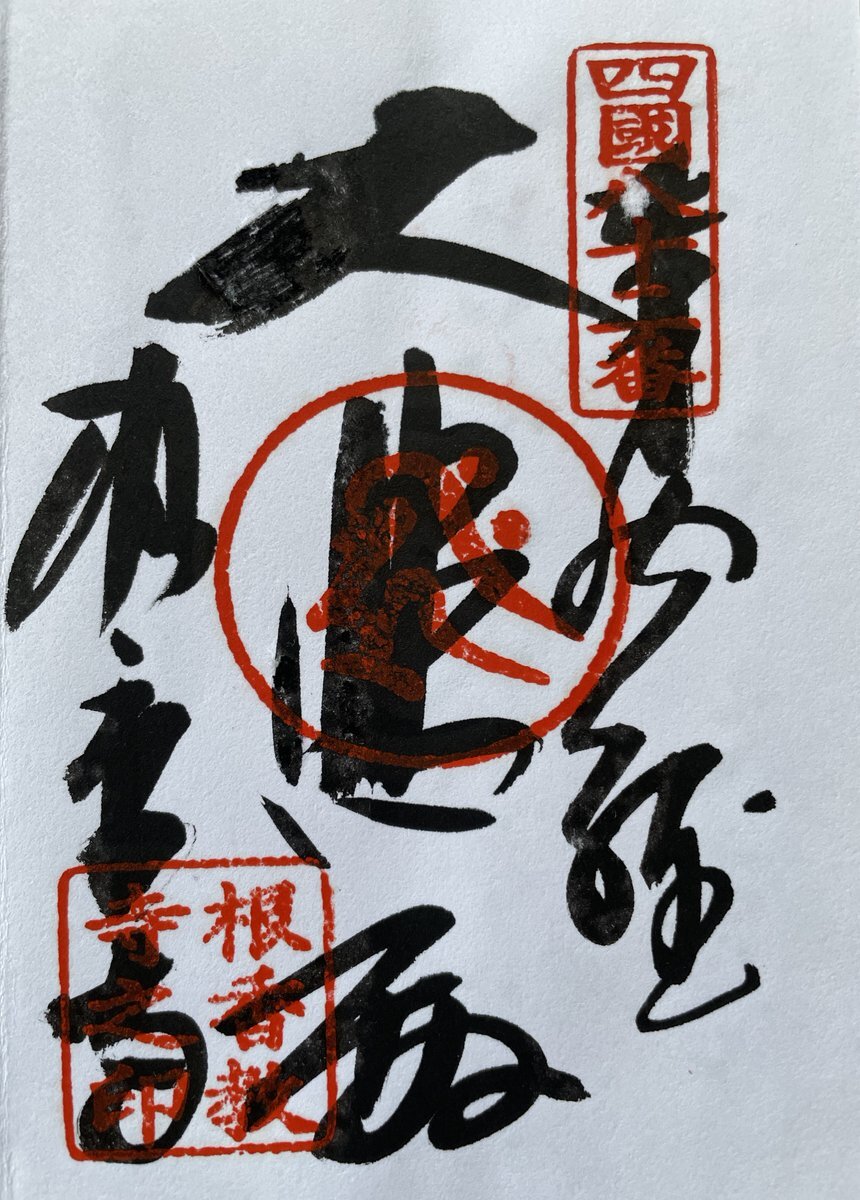 四國八十二番
奉納経
大悲殿
根香寺
根香教
寺之印